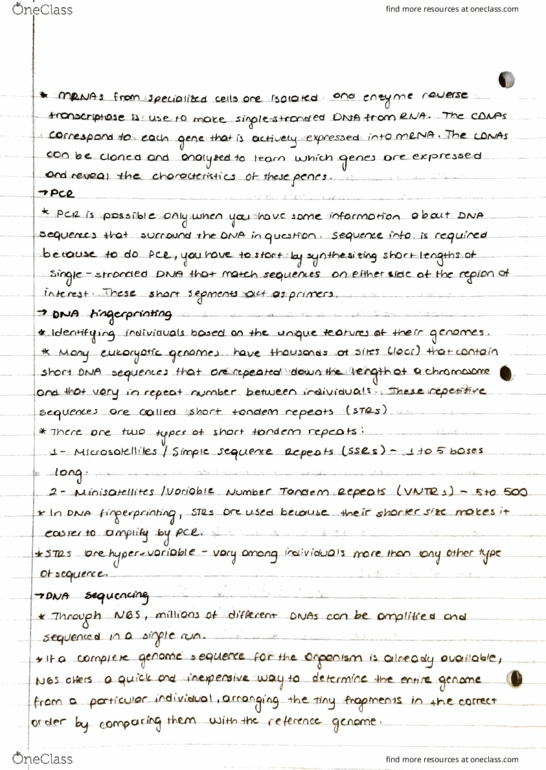 OneClass
find more resources at oneclass.com
* mRNAs from specialized cells are isolated and enzyme reverse
transcriptase is use to make single-stranded DNA from RNA. The cDNAs
correspond to each gene that is actively expressed into mRNA. The cDNAs
can be cloned and analyzed to learn which genes are expressed
and reveal the characteristics of these genes.
→ PCR
* PCR is possible only when you have some information about DNA
sequences that surround the DNA in question. Sequence info is required
because to do PCR, you have to start by synthesizing short lengths of
single-stranded DNA that match sequences on either side of the region of
interest. These short segments act as primers.
→ DNA fingerprinting
* Identifying individuals based on the unique features of their genomes.
* Many eukaryotic genomes have thousands of sites (loci) that contain
short DNA sequences that are repeated down the length of a chromosome
and that vary in repeat number between individuals. These repetitive
sequences are called short tandem repeats (STRs)
* There are two types of short tandem repeats:
1- Microsatellites / Simple Sequence Repeats (SSRs) - 1 to 5 bases
long.
2- Minisatellites / Variable Number Tandem Repeats (VNTRs) - 5 to 500
* In DNA fingerprinting, STRs are used because their shorter size makes it
easier to amplify by PCR.
* STRs are hyper-variable - vary among individuals more than any other type
of sequence.
→ DNA sequencing
* Through NGS, millions of different DNAs can be amplified and
sequenced in a single run.
* If a complete genome sequence for the organism is already available,
NGS offers a quick and inexpensive way to determine the entire genome
from a particular individual, arranging the tiny fragments in the correct
order by comparing them with the reference genome.
OneClass
find more resources at oneclass.com